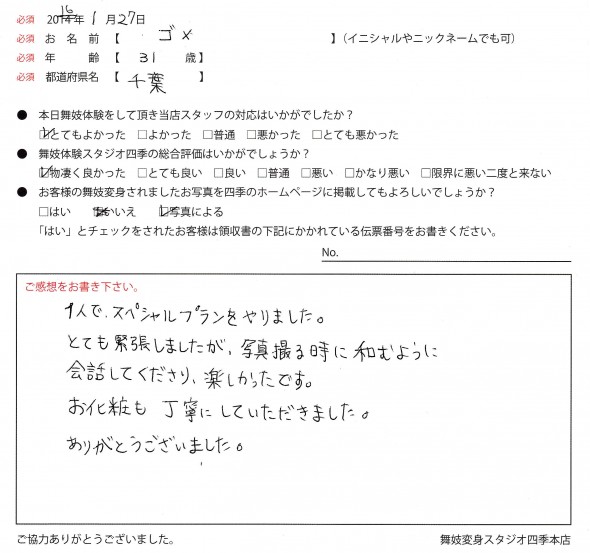 必須 2014年 16 1月27日
必須 お名前【 ゴメ 】(イニシャルやニックネームでも可)
必須 年齢【 31 歳】
必須 都道府県名【 千葉 】
● 本日舞妓体験をして頂き当店スタッフの対応はいかがでしたか?
☑とてもよかった □よかった □普通 □悪かった □とても悪かった
● 舞妓体験スタジオ四季の総合評価はいかがでしょうか?
☑物凄く良かった □とても良い □良い □普通 □悪い □かなり悪い □限界に悪い二度と来ない
● お客様の舞妓変身されましたお写真を四季のホームページに掲載してもよろしいでしょうか?
□はい □いいえ ☑写真による
「はい」とチェックをされたお客様は領収書の下記にかかれている伝票番号をお書きください。
No.
ご感想をお書き下さい。
1人で、スペシャルプランをやりました。
とても緊張しましたが、写真撮る時に和むように
会話してくださり、楽しかったです。
お化粧も丁寧にしていただきました。
ありがとうございました。
ご協力ありがとうございました。
舞妓変身スタジオ四季本店